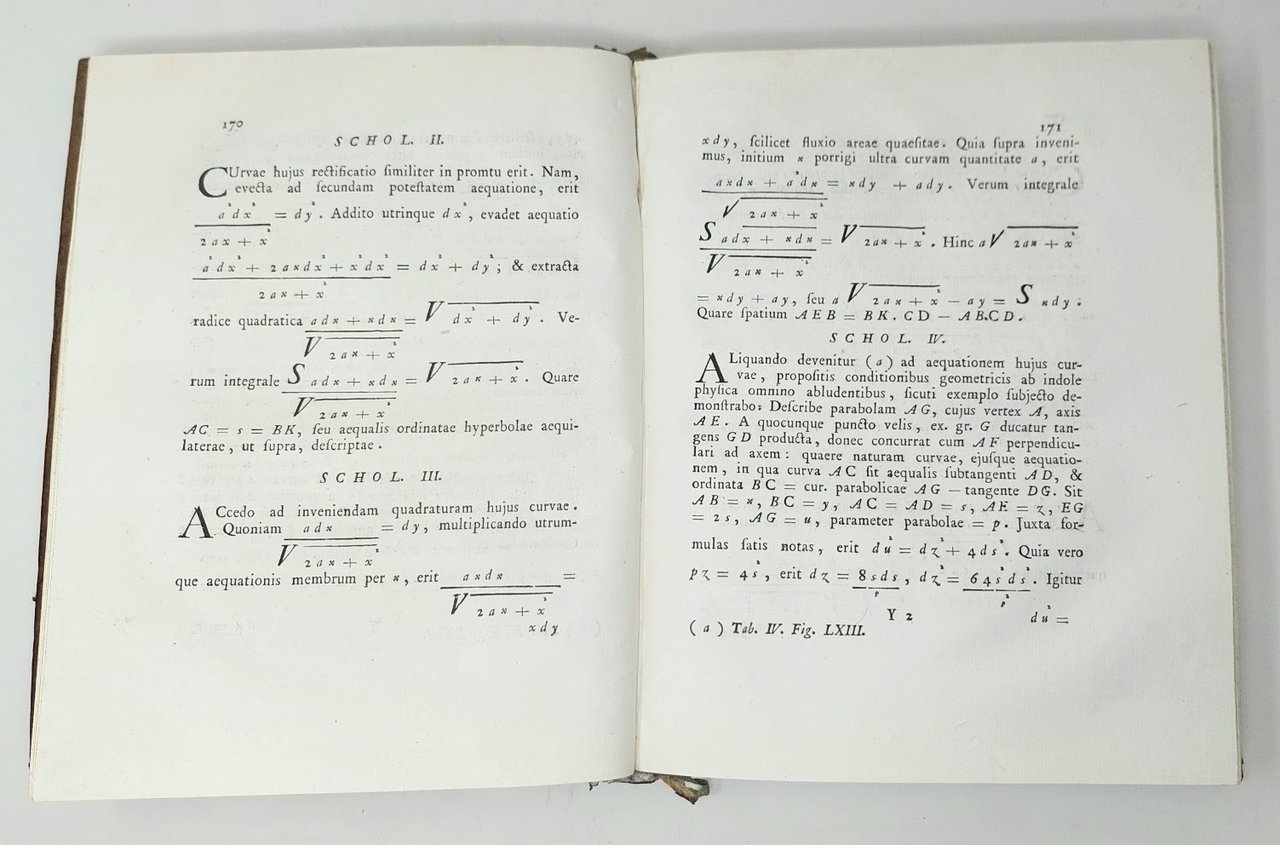 170
SCHOL. II.
CUrvae hujus rectificatio similiter in promtu erit. Nam,
evecta ad secundam potestatem aequatione, erit
a²dx² / 2ax + x² = dy². Addito utrinque dx², evadet aequatio
a²dx² + 2axdx² + x²dx² / 2ax + x² = dx² + dy²; & extracta
radice quadratica adx + xdx / √2ax + x² = √dx² + dy². Ve-
rum integrale S adx + xdx / √2ax + x² = √2ax + x². Quare
AC = s = BK, seu aequalis ordinatae hyperbolae aequi-
laterae, ut supra, descriptae.
SCHOL. III.
ACcedo ad inveniendam quadraturam hujus curvae.
Quoniam adx / √2ax + x² = dy, multiplicando utrum-
que aequationis membrum per x, erit axdx / √2ax + x² =
xdy
171
xdy, scilicet fluxio areae quaesitae. Quia supra inveni-
mus, initium x porrigi ultra curvam quantitate a, erit
axdx + a²dx / √2ax + x² = xdy + ady. Verum integrale
S adx + xdx / √2ax + x² = √2ax + x². Hinc a√2ax + x²
= xdy + ay, seu a√2ax + x² - ay = S xdy.
Quare spatium AEB = BK. CD - AB.CD.
SCHOL. IV.
ALiquando devenitur (a) ad aequationem hujus cur-
vae, propositis conditionibus geometricis ab indole
physica omnino abludentibus, sicuti exemplo subjecto de-
monstrabo: Describe parabolam AG, cujus vertex A, axis
AE. A quocunque puncto velis, ex. gr. G ducatur tan-
gens GD producta, donec concurrat cum AF perpendicu-
lari ad axem: quaere naturam curvae, ejusque aequatio-
nem, in qua curva AC sit aequalis subtangenti AD, &
ordinata BC = cur. parabolicae AG - tangente DG. Sit
AB = x, BC = y, AC = AD = s, AE = z, EG
= 2s, AG = u, parameter parabolae = p. Juxta for-
mulas satis notas, erit du² = dz² + 4ds². Quia vero
pz = 4s², erit dz = 8sds / p, dz² = 64s²ds² / p². Igitur
Y 2
du² =
(a) Tab. IV. Fig. LXIII.